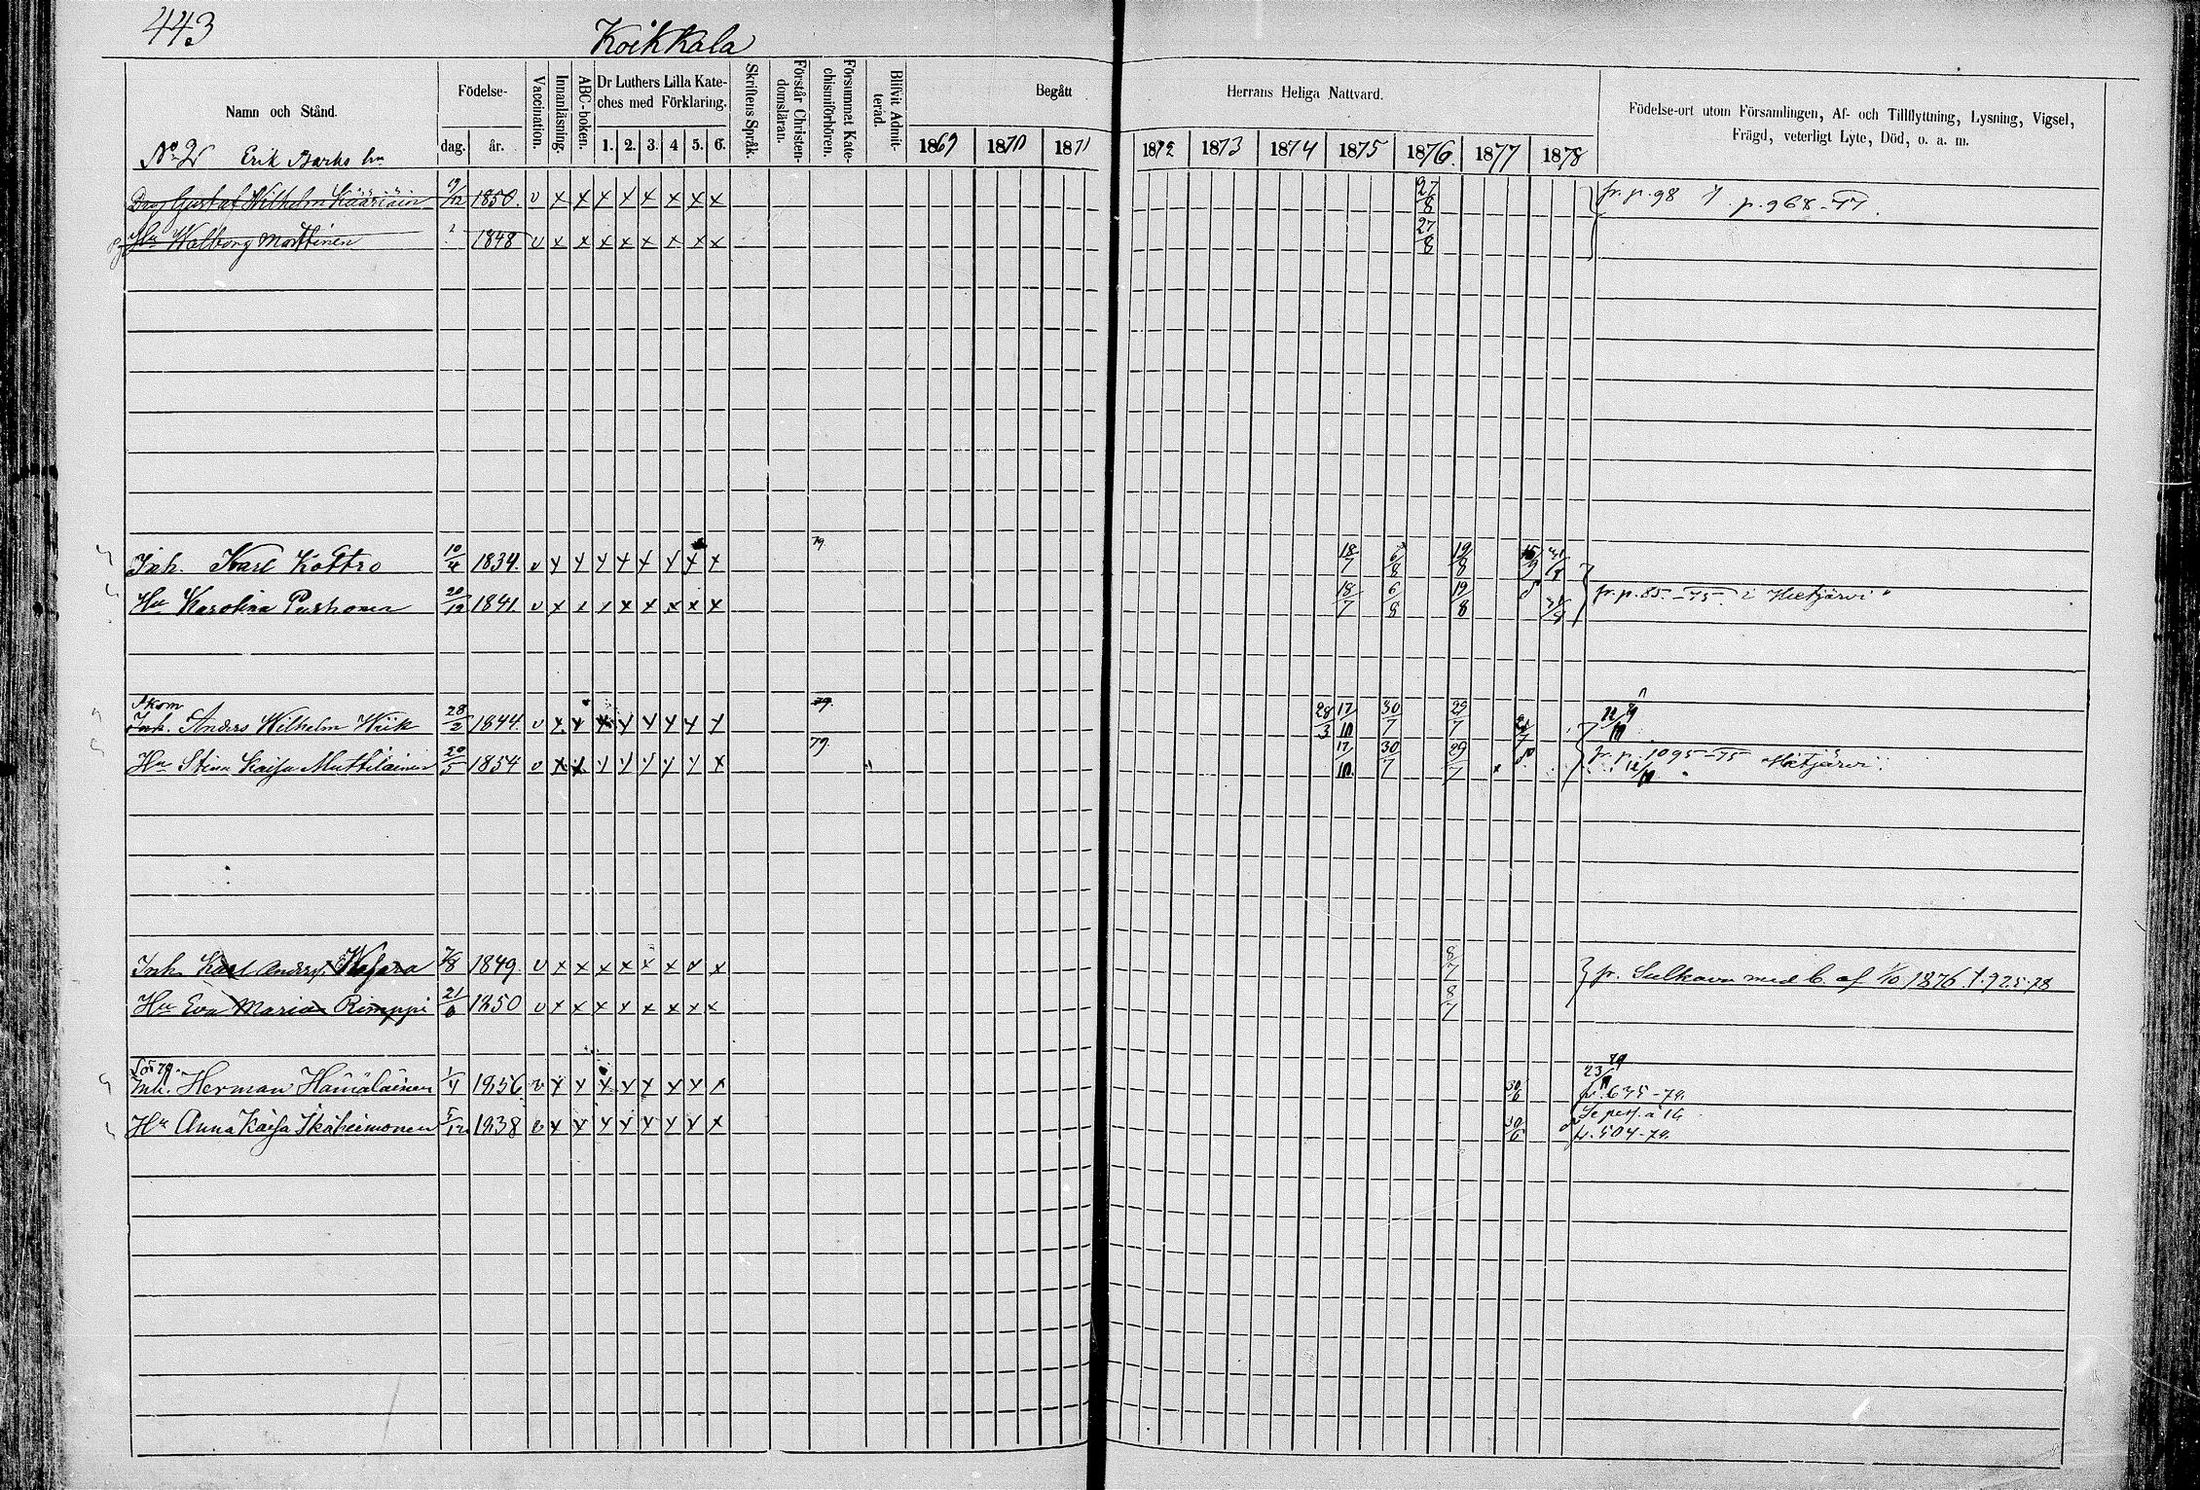 443
Koikkala
Namn och Stånd.
Födelse-
dag.
år.
Vaccination.
Innanläsning.
ABC-boken.
Dr Luthers Lilla Kate-
ches med Förklaring.
1. 2. 3. 4 5. 6.
Skriftens Språk.
Förstår Christen-
domsläran.
Försummat Kate-
chismiförhören.
Blifvit Admit-
terad.
Begått
Herrans Heliga Nattvard.
1869 1870 1871 1872 1873 1874 1875 1876. 1877 1878
Födelse-ort utom Församlingen, Af- och Tillflyttning, Lysning, Vigsel,
Frägd, veterligt Lyte, Död, o. a. m.
No 2 Erik
Gustaf Wilhelm Kääriäin 19/12 1850. v x x x x x x x x 27/8 fr. p. 98 p. 968-77.
Hu Walborg Marttinen 1848 v x x x x x x x x 27/8
Inh. Karl Kottro 10/4 1834. v x x x x x x x x 79. 18/7 6/8 19/8
Hu Karolina Pushonen 20/12 1841. v x x x x x x x x 18/7 6/8 19/8 fr. p. 85.-75. i Hietjärvi
Skom
Inh. Anders Wilhelm Wiik 28/2 1844. v x x x x x x x x 79. 28/3 17/10 30/7 29/7
Hu Stina Kaisa Muttilainen 20/5 1854 v x x x x x x x x 79. 17/10 30/7 29/7 fr. p. 1095-75 Hietjärvi
Inh. Karl Anders 7/8 1849. v x x x x x x v x 8/7 fr. Sulkava med b. af 1/10 1876. t. 925-78
Hu Eva Maria Rimppi 21/6 1850 v x x x x x x x x 8/7
Inh. Herman Hämäläinen 1/4 1856. v x x x x x x x x 30/6 fr. 635-79.
Hu Anna Kaisa 5/12 1838 v x x x x x x x x 30/6 fr. 504-79.